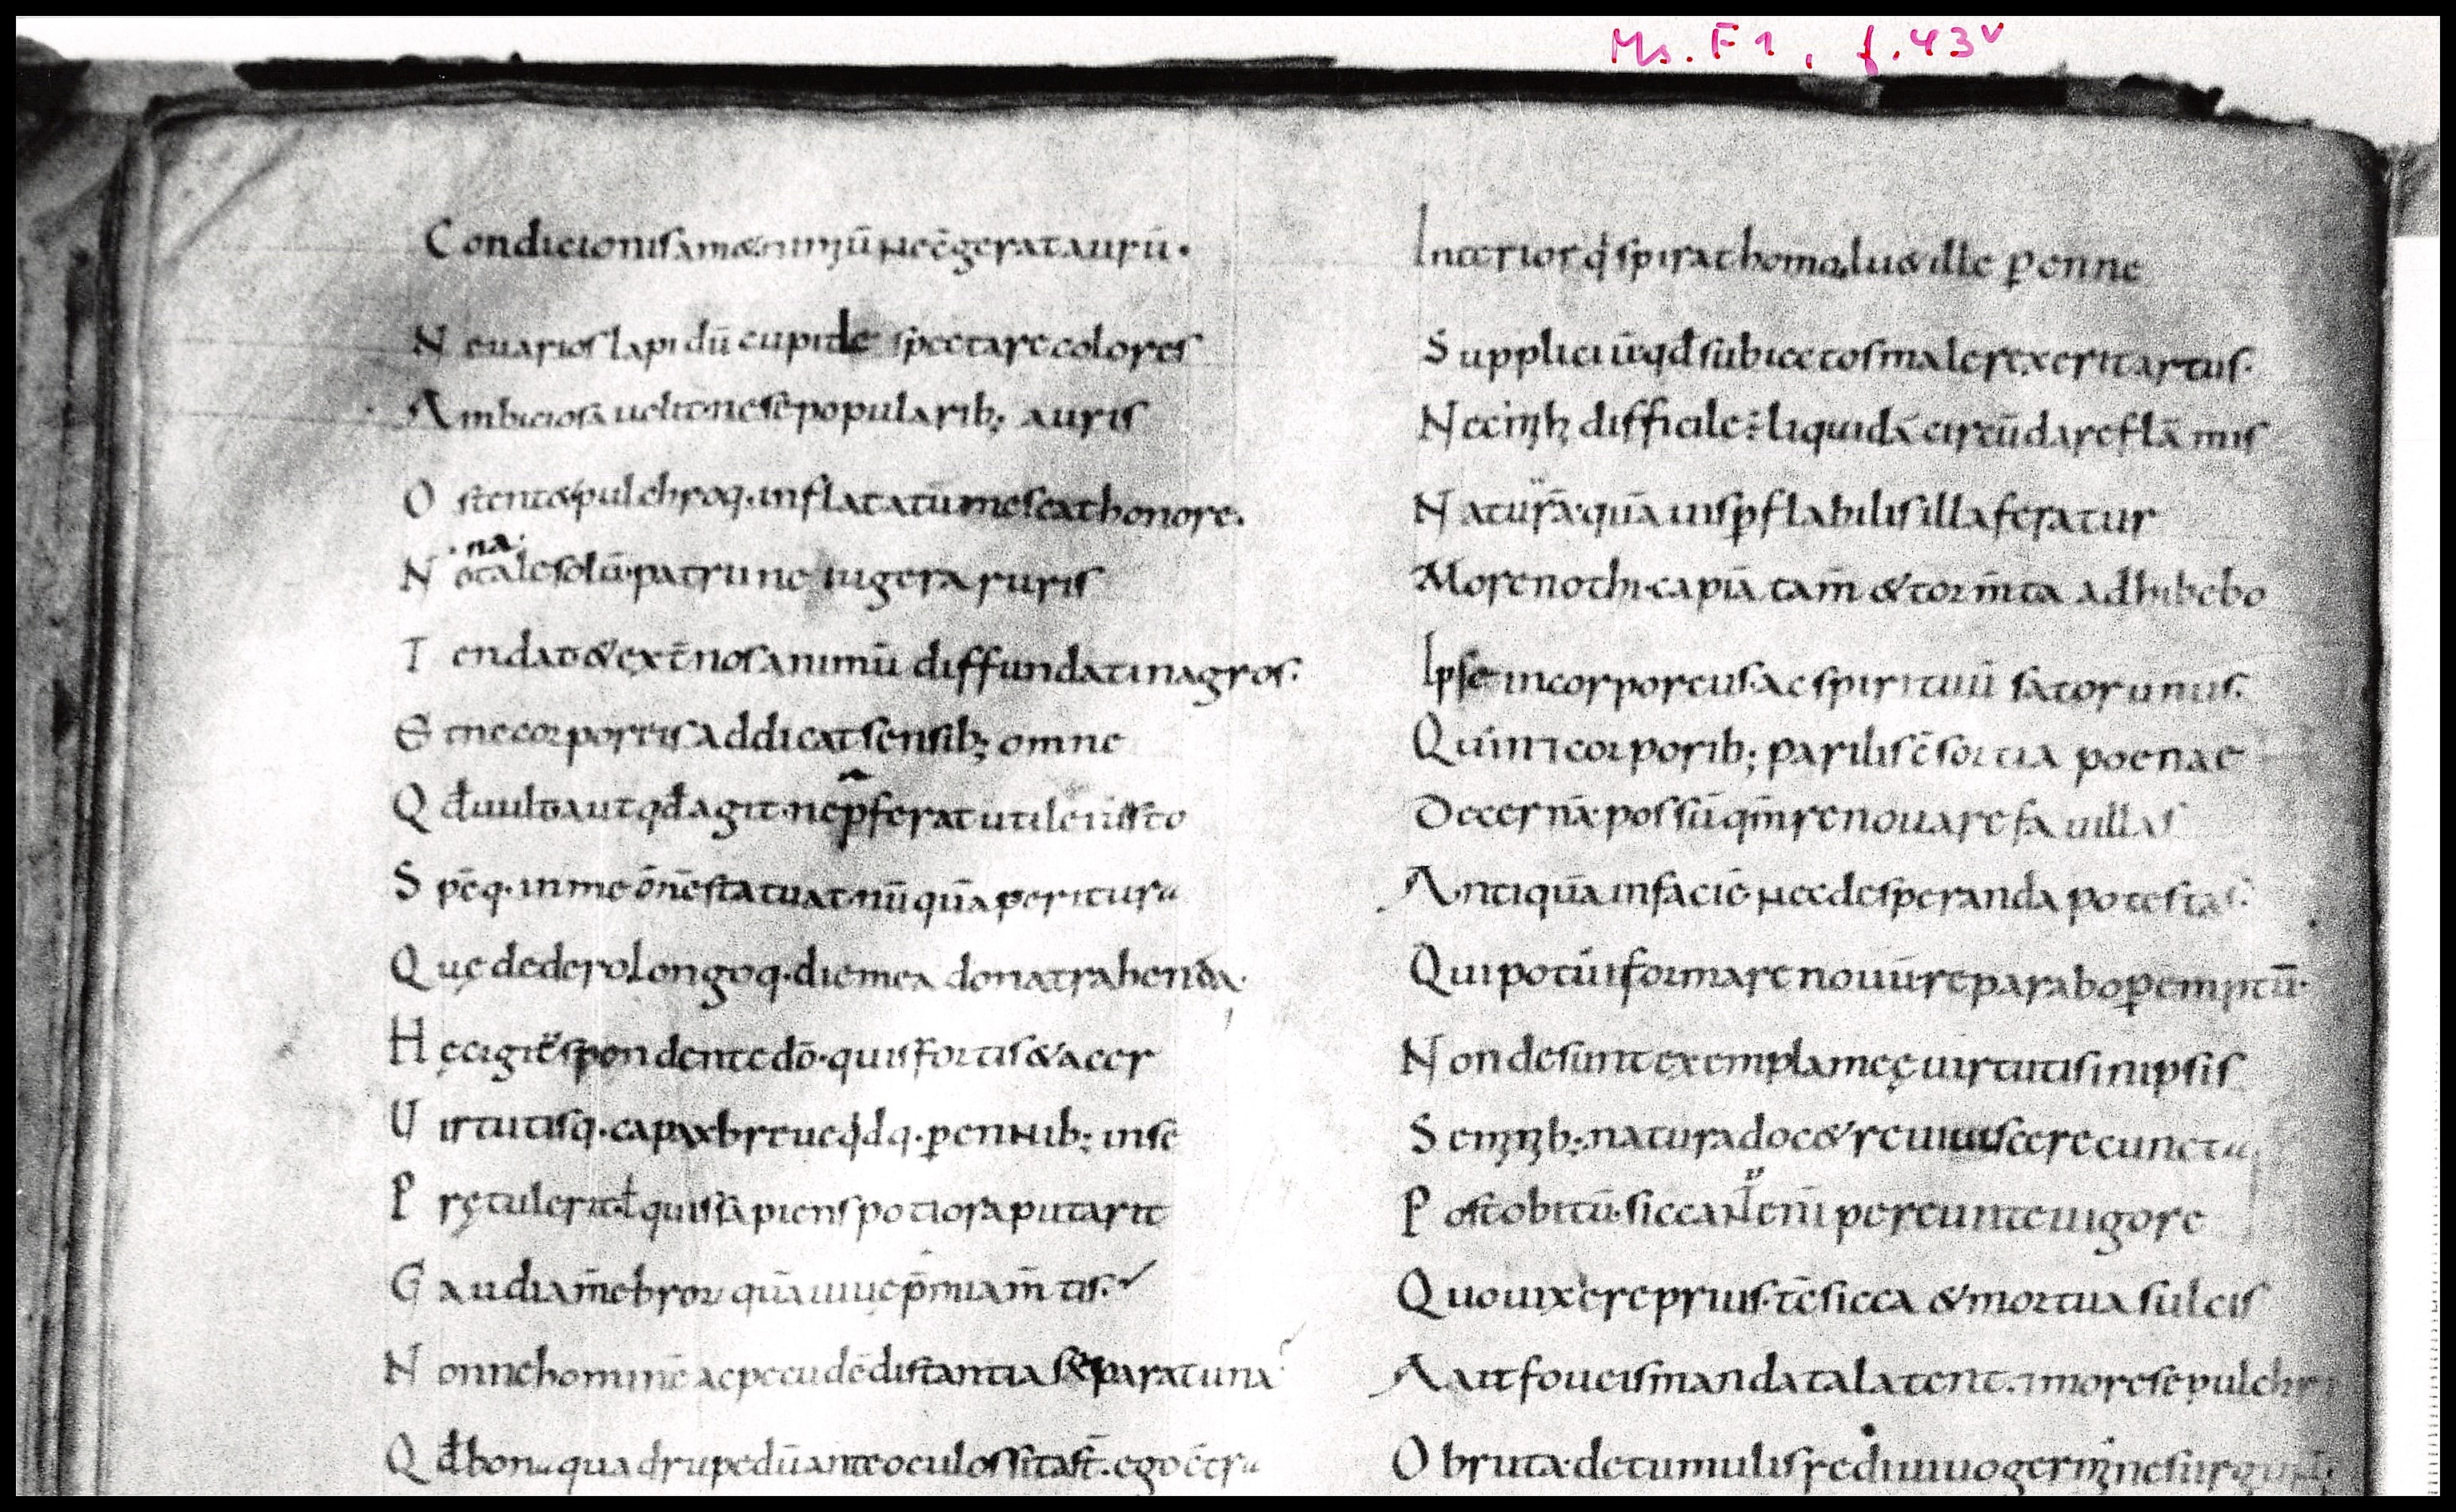 Ms. F1, f. 43v
Condicionis am& nimiū nec c̄gerat aurū.
Ne uarios lapidū cupide spectare colores
Ambiciosā uelit· ne sē popularib; auris
Ostent& pulchroq. inflata tūmescat honore.
·na·
Notale solū· patrii nc iugera ruris
Tendat· & ext̄nos animū diffundat in agros·
Et ne corporeis addicat sensib; omne
Qđ uult aut qđ agit· ne p̄ferat utile iusto
Spēq. in me ōnē statuat· nū quā peritura
Quę dedero longoq. die mea dona trahenda.
Hęc igit̄ spondente dō· quis fortis & acer
Uirtutisq. capax breue qdq. p̲ennib; in sē
Prętulerit· ł quis sāpiens potiora putarit
Gaudia m̄ebroꝝ quā uiuę p̄mia m̄tis·
Nonne hominē ac pecudē distantia separat una
Qđ bona quadrupedū ante oculos sita st̄· ego c̄tra
Interior qđ spirat homo· lu& ille p̲enne
Suppliciū· qđ subiectos male rexerit artus·
Nec m̄h difficile ÷ liquidā circū dare flām mis
Naturā· quā uis p̲flabilis illa feratur
More nothi· capiā tam̄ & torm̄ta adhibebo
Ipse incorporeus· ac spirituū sator unus·
Quin ⁊ corporib; parilis c̄sortia poenae
Decernā· possū qm̄ renouare fauillas
Antiquā in faciē· nec desperanda potestas·
Qui potui formare nouū· reparabo p̲emptū·
Non desunt exempla meę uirtutis in ipsis
Seminib; natura doc& reuiuiscere cuncta
Post obitū· siccant̄ eni pereunte uigore
Quo uixere prius· tē sicca & mortua sulcis
Aut foueis mandata latent· ⁊ more sepulchri
Obruta· de tumulis rediuiuo germine surgunt·